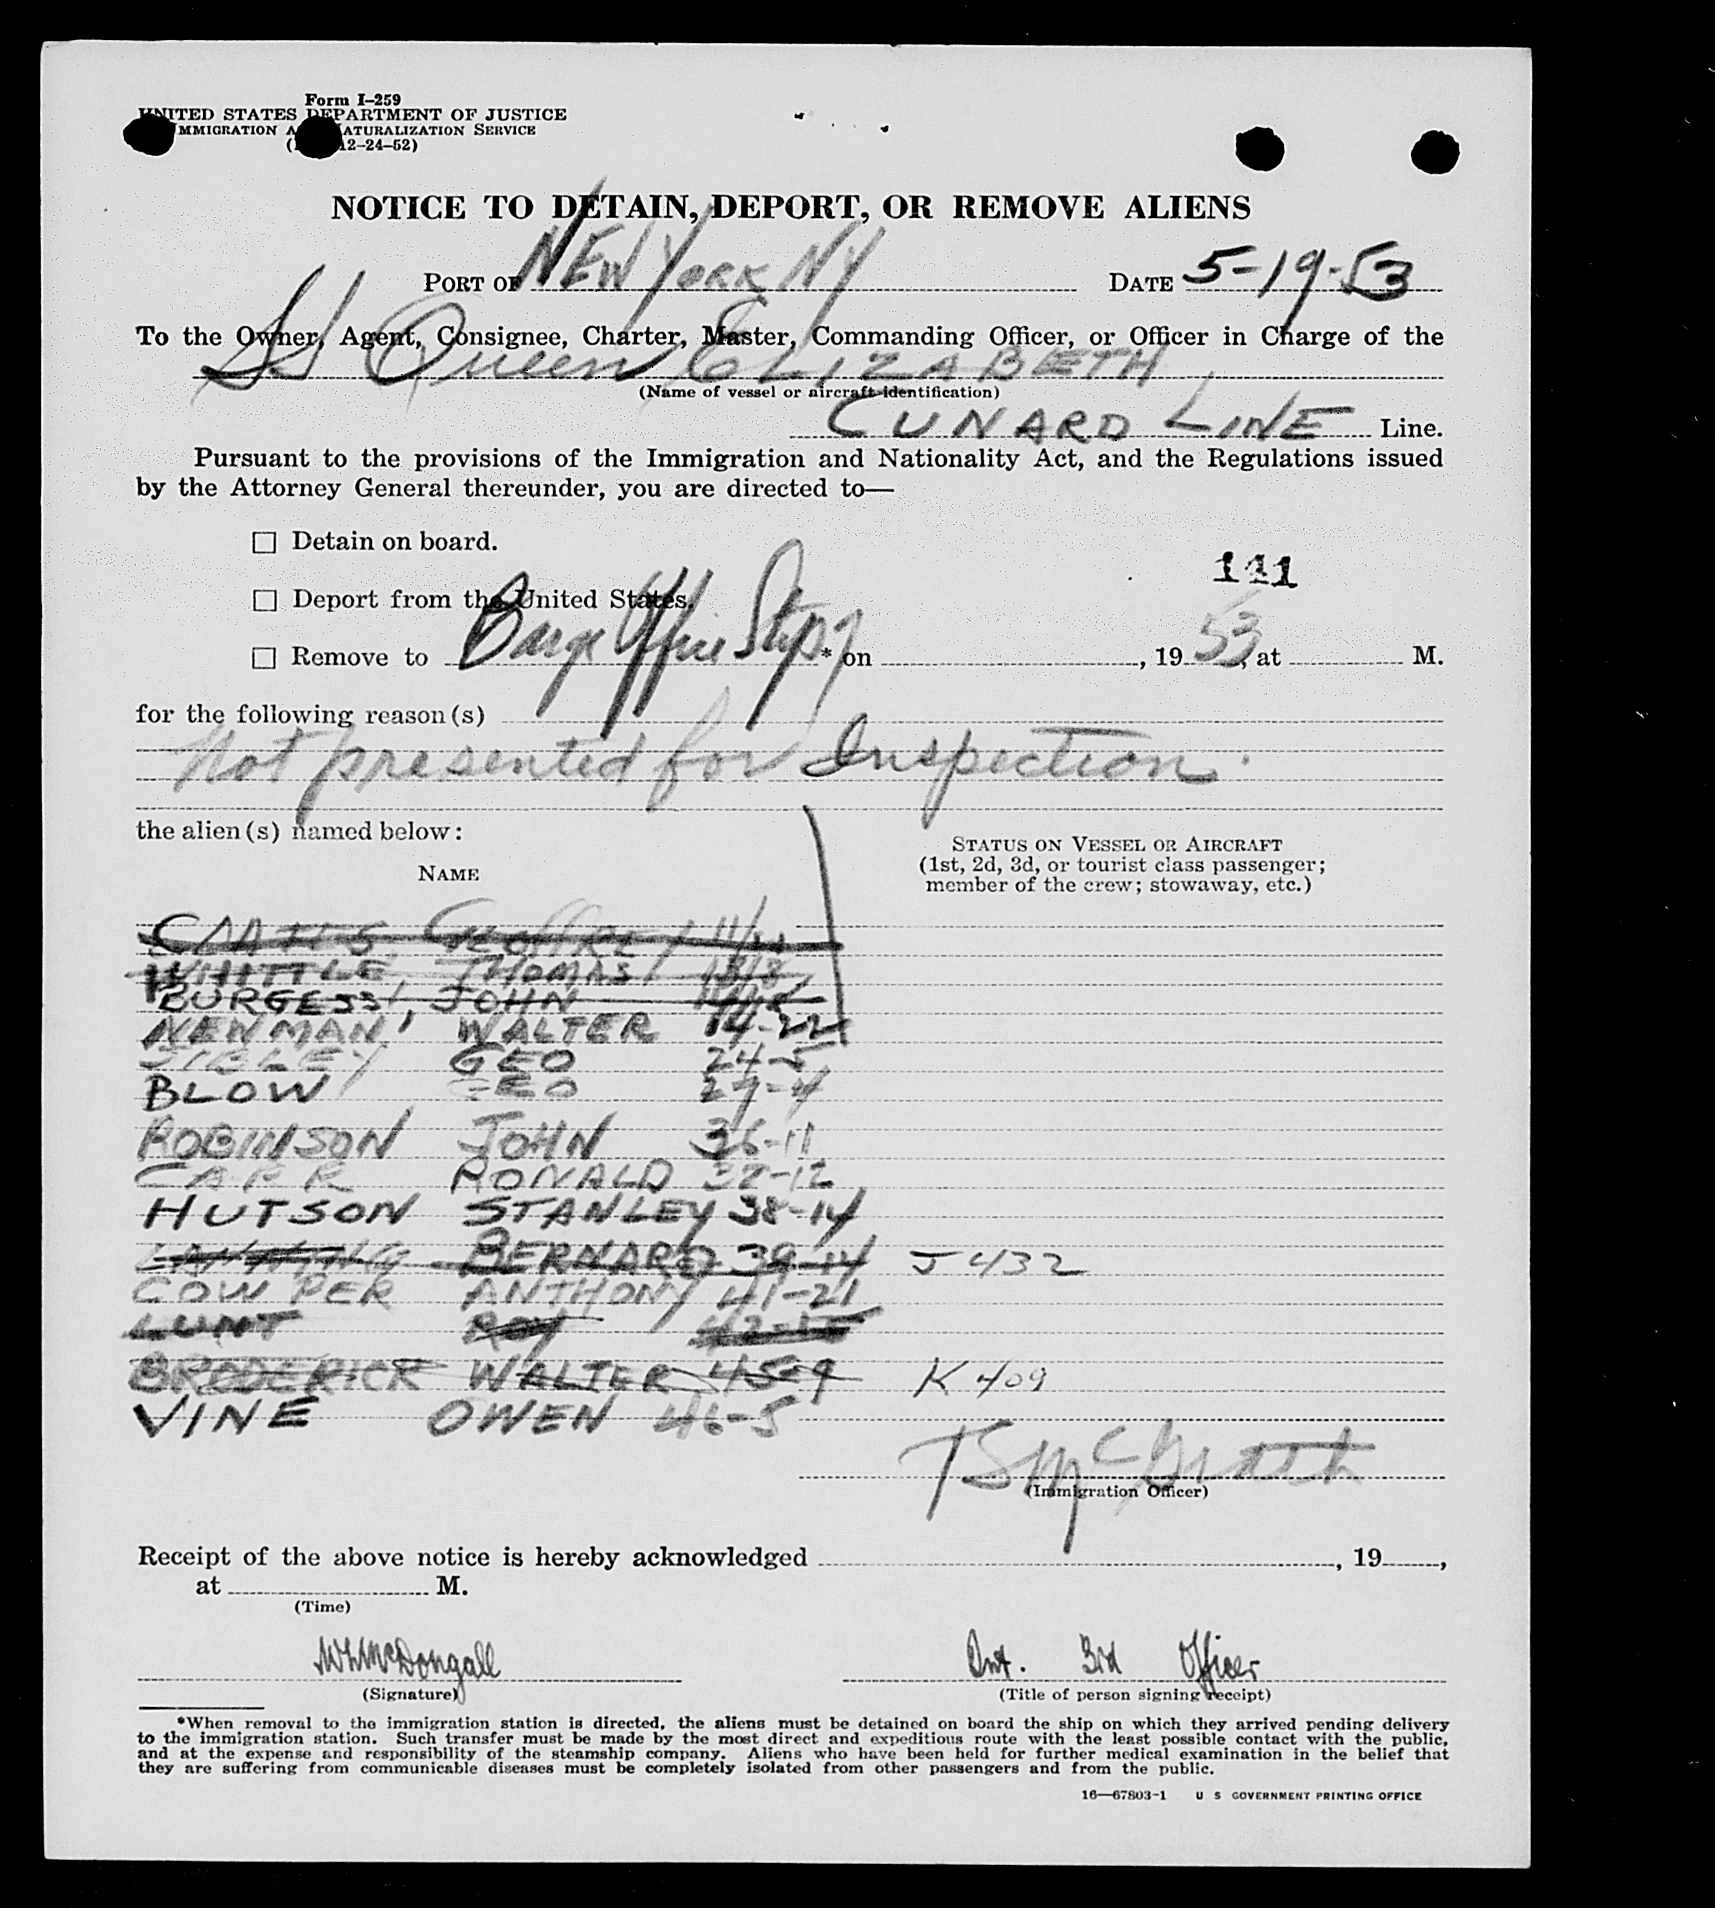 Form I-259
UNITED STATES DEPARTMENT OF JUSTICE
IMMIGRATION AND NATURALIZATION SERVICE
12-24-52)
NOTICE TO DETAIN, DEPORT, OR REMOVE ALIENS
PORT OF NEW YORK NY DATE 5-19-53
To the Owner, Agent, Consignee, Charter, Master, Commanding Officer, or Officer in Charge of the
SS Queen ELIZABETH,
(Name of vessel or aircraft identification)
CUNARD LINE Line.
Pursuant to the provisions of the Immigration and Nationality Act, and the Regulations issued
by the Attorney General thereunder, you are directed to—
☐ Detain on board.
141
☐ Deport from the United States.
☐ Remove to Barge Office * on , 1953, at M.
for the following reason(s)
Not presented for Inspection.
the alien(s) named below:
STATUS ON VESSEL OR AIRCRAFT
(1st, 2d, 3d, or tourist class passenger;
member of the crew; stowaway, etc.)
NAME
WHITTLE, THOMAS
BURGESS, JOHN
NEWMAN, WALTER 14-22
SIBLEY GEO 24-5
BLOW GEO 27-4
ROBINSON JOHN 36-11
CARR RONALD 37-12
HUTSON STANLEY 38-14
BERNARD 39-14 J 432
COWPER ANTHONY 41-21
LUNT ROY 42-15
BRODERICK WALTER 45-9 K 409
VINE OWEN 46-5
TS McGrath
(Immigration Officer)
Receipt of the above notice is hereby acknowledged , 19 ,
at M.
(Time)
McDougall Int. 3rd Officer
(Signature) (Title of person signing receipt)
*When removal to the immigration station is directed, the aliens must be detained on board the ship on which they arrived pending delivery
to the immigration station. Such transfer must be made by the most direct and expeditious route with the least possible contact with the public,
and at the expense and responsibility of the steamship company. Aliens who have been held for further medical examination in the belief that
they are suffering from communicable diseases must be completely isolated from other passengers and from the public.
16—67803-1 U S GOVERNMENT PRINTING OFFICE